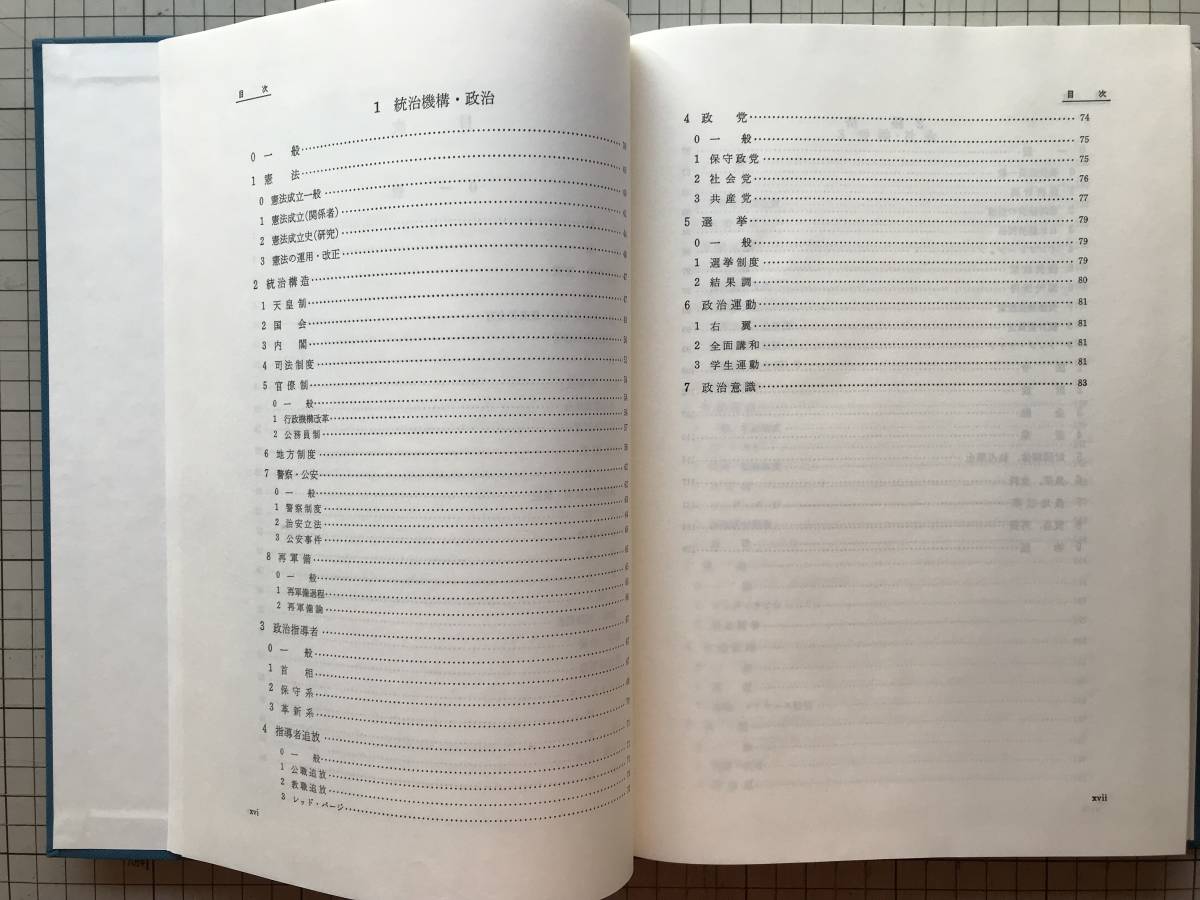 目 次
1 統治機構・政治
0 一 般
1 憲 法
0 憲法成立一般
1 憲法成立(関係者)
2 憲法成立史(研究)
3 憲法の運用・改正
2 統治構造
1 天皇制
2 国 会
3 内 閣
4 司法制度
5 官僚制
0 一 般
1 行政機構改革
2 公務員制
6 地方制度
7 警察・公安
0 一 般
1 警察制度
2 治安立法
3 公安事件
8 再軍備
0 一 般
1 再軍備過程
2 再軍備論
3 政治指導者
0 一 般
1 首 相
2 保守系
3 革新系
4 指導者追放
0 一 般
1 公職追放
2 教職追放
3 レッド・パージ
xvi
目 次
4 政 党 74
0 一 般 75
1 保守政党 75
2 社会党 76
3 共産党 77
5 選 挙 79
0 一 般 79
1 選挙制度 79
2 結果調 80
6 政治運動 81
1 右 翼 81
2 全面講和 81
3 学生運動 81
7 政治意識 83
xvii